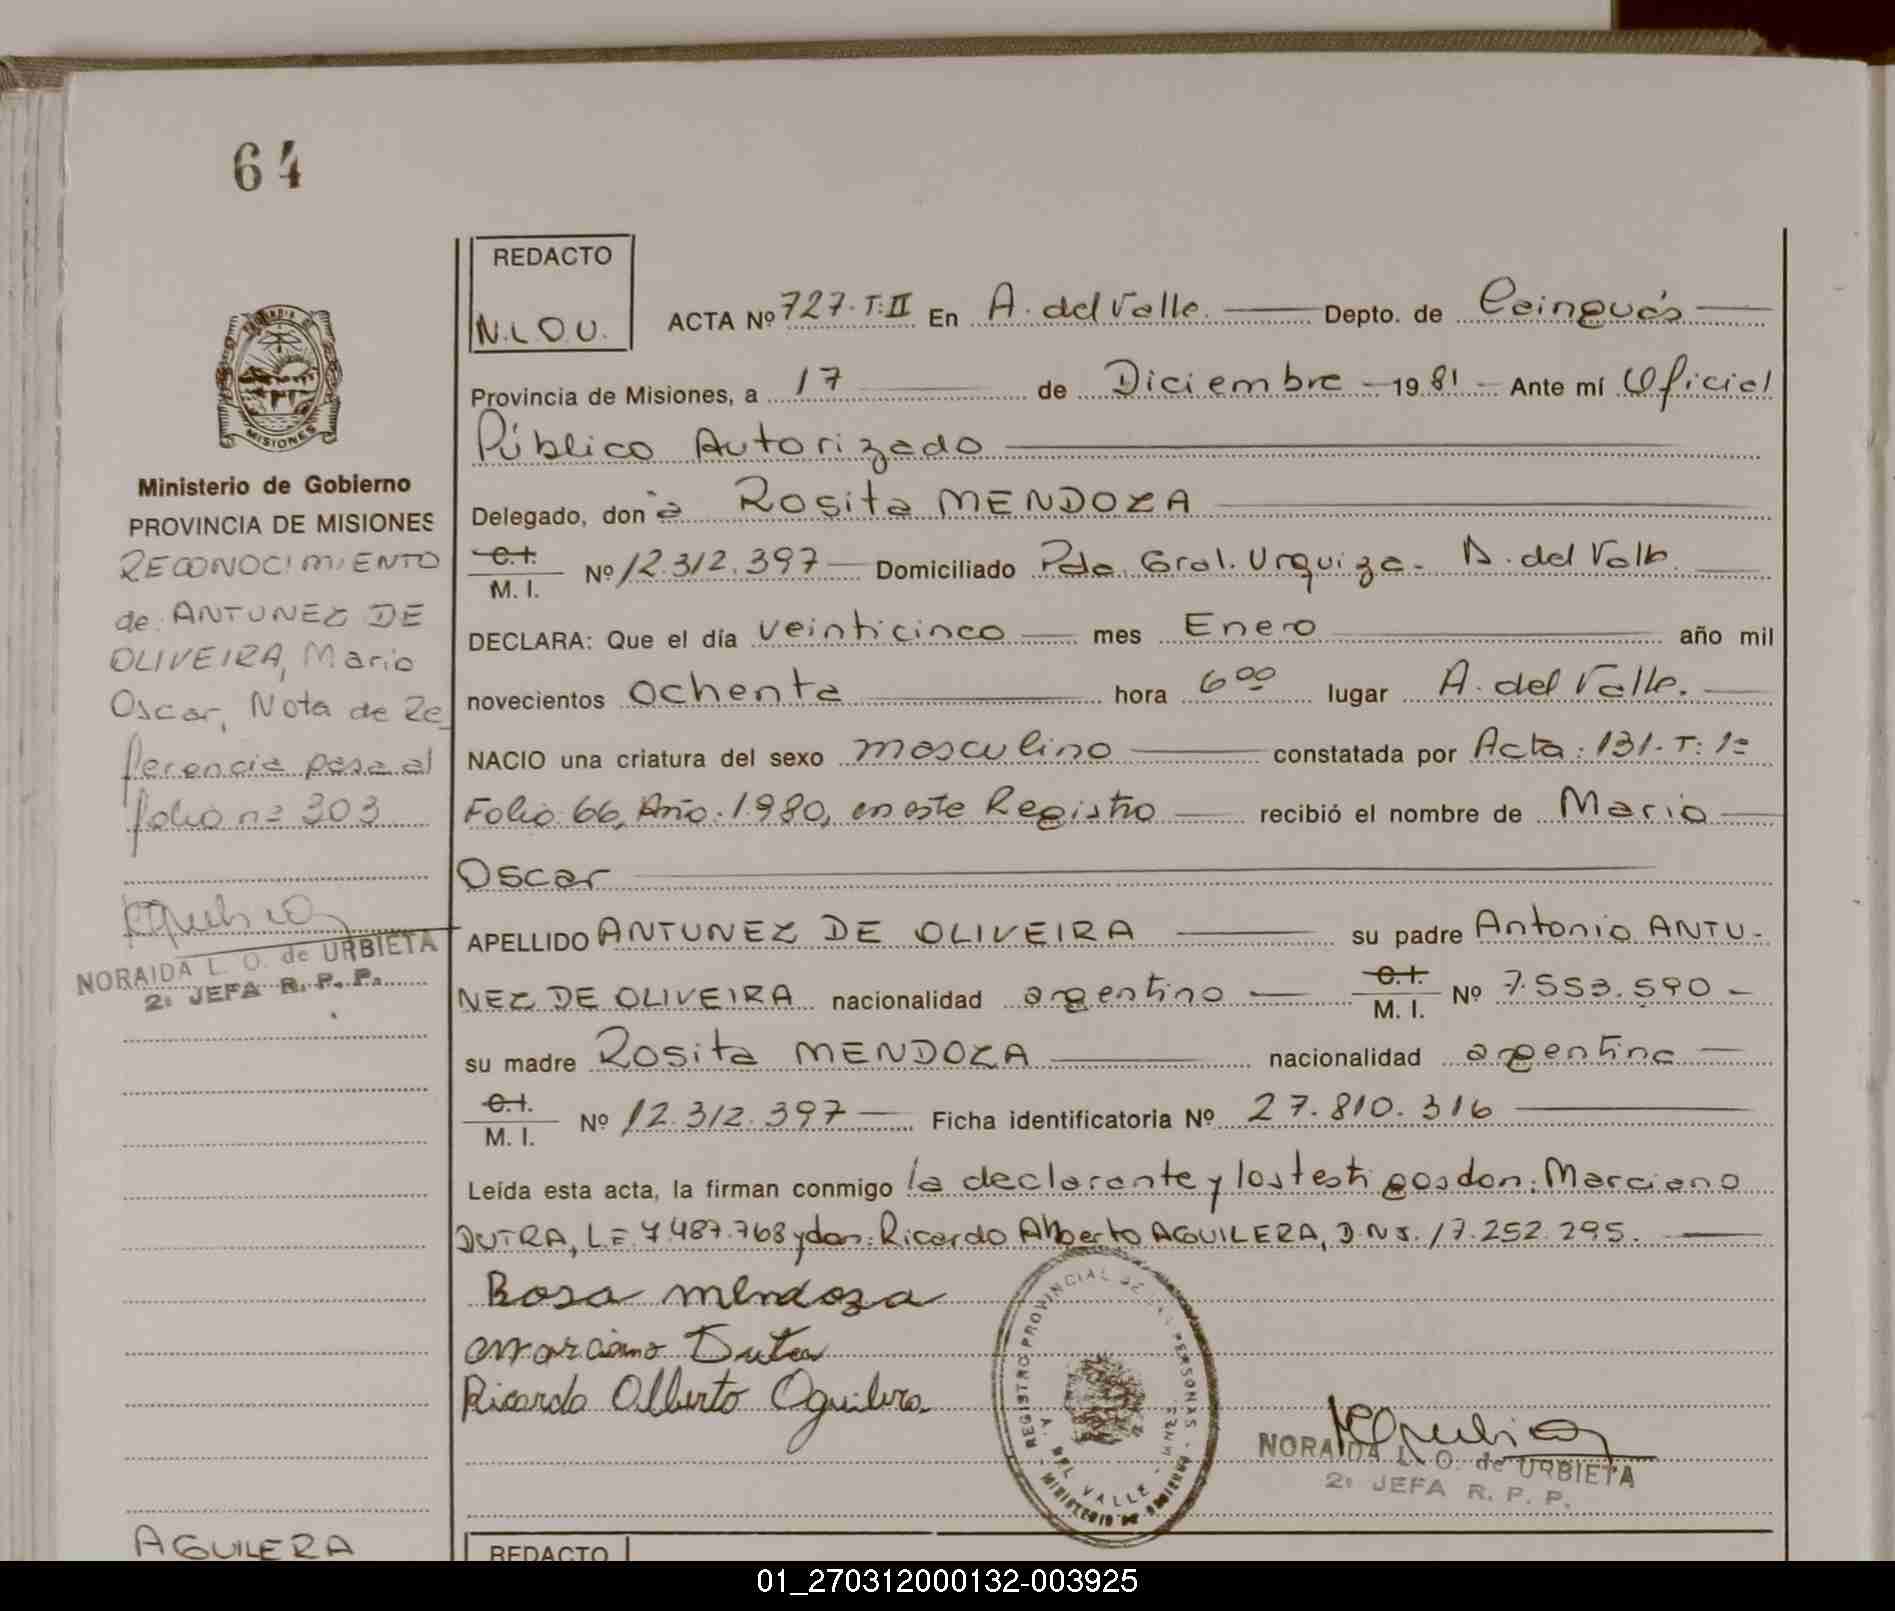 64
REDACTO
N.L.O.U.
ACTA Nº 727.T:II En A. del Valle. Depto. de Cainguás
Provincia de Misiones, a 17 de Diciembre 1981 Ante mí Oficial
Público Autorizado
Delegado, don a Rosita MENDOZA
C.I.
M. I. Nº 12.312.397 Domiciliado Pda. Gral. Urquiza. A. del Valle
DECLARA: Que el día veinticinco mes Enero año mil
novecientos ochenta hora 6 00 lugar A. del Valle.
NACIO una criatura del sexo masculino constatada por Acta: 131. T: 1º
Folio 66, Año: 1980, en este Registro recibió el nombre de Mario
Oscar
APELLIDO ANTUNEZ DE OLIVEIRA su padre Antonio ANTU-
NEZ DE OLIVEIRA nacionalidad argentino C.I. M. I. Nº 7.553.590
su madre Rosita MENDOZA nacionalidad argentina
C.I.
M. I. Nº 12.312.397 Ficha identificatoria Nº 27.810.316
Leída esta acta, la firman conmigo la declarante y los testigos don: Marciano
DUTRA, L.E. 7.487.768 y don: Ricardo Alberto AGUILERA, D.N.I. 17.252.295.
Rosa Mendoza
Marciano Dutra
Ricardo Alberto Aguilera
REGISTRO PROVINCIAL DE LAS PERSONAS
A. DEL VALLE
MINISTERIO DE GOBIERNO
NORAIDA L. O. de URBIETA
2ª JEFA R. P. P.
PROVINCIA DE
MISIONES
Ministerio de Gobierno
PROVINCIA DE MISIONES
RECONOCIMIENTO
de: ANTUNEZ DE
OLIVEIRA, Mario
Oscar, Nota de Re_
ferencia pasa al
folio nº 303
NORAIDA L. O. de URBIETA
2ª JEFA R. P. P.
AGUILERA
REDACTO
01_270312000132-003925